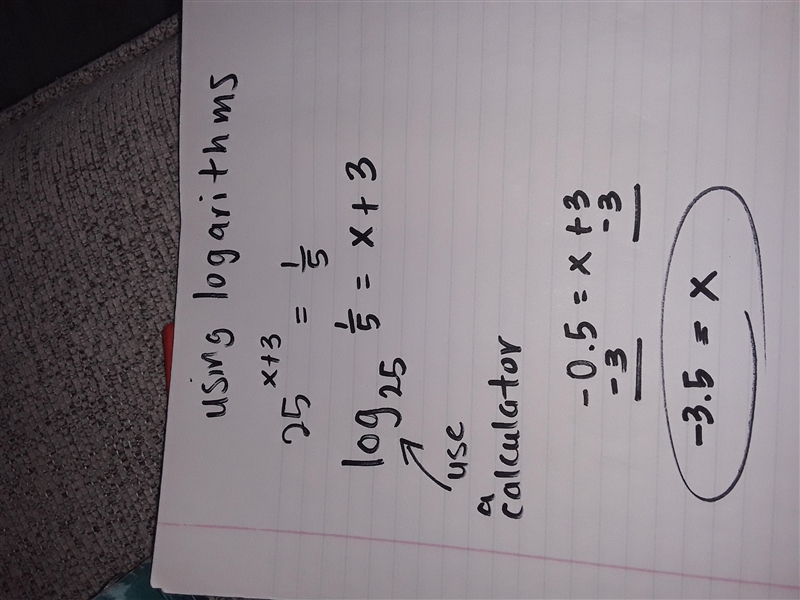 using logarithms
25^(x+3) = 1/5
log₂₅ 1/5 = x + 3
use
a
calculator
-0.5 = x + 3
-3 -3
-3.5 = x